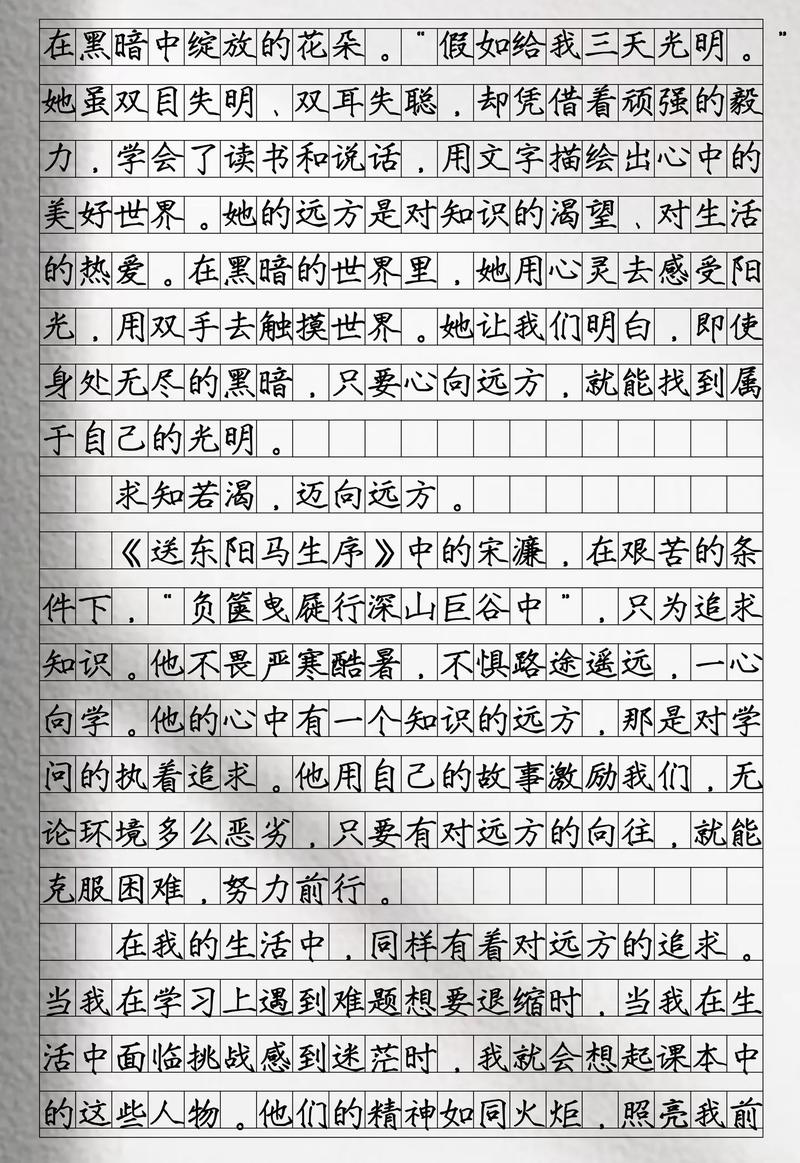 在黑暗中绽放的花朵。“假如给我三天光明。”
她虽双目失明、双耳失聪，却凭借着顽强的毅
力，学会了读书和说话，用文字描绘出心中的
美好世界。她的远方是对知识的渴望、对生活
的热爱。在黑暗的世界里，她用心灵去感受阳
光，用双手去触摸世界。她让我们明白，即使
身处无尽的黑暗，只要心向远方，就能找到属
于自己的光明。
求知若渴，迈向远方。
《送东阳马生序》中的宋濂，在艰苦的条
件下，“负箧曳屣行深山巨谷中”，只为追求
知识。他不畏严寒酷暑，不惧路途遥远，一心
向学。他的心中有一个知识的远方，那是对学
问的执着追求。他用自己的故事激励我们，无
论环境多么恶劣，只要有对远方的向往，就能
克服困难，努力前行。
在我的生活中，同样有着对远方的追求。
当我在学习上遇到难题想要退缩时，当我在生
活中面临挑战感到迷茫时，我就会想起课本中
的这些人物。他们的精神如同火炬，照亮我前